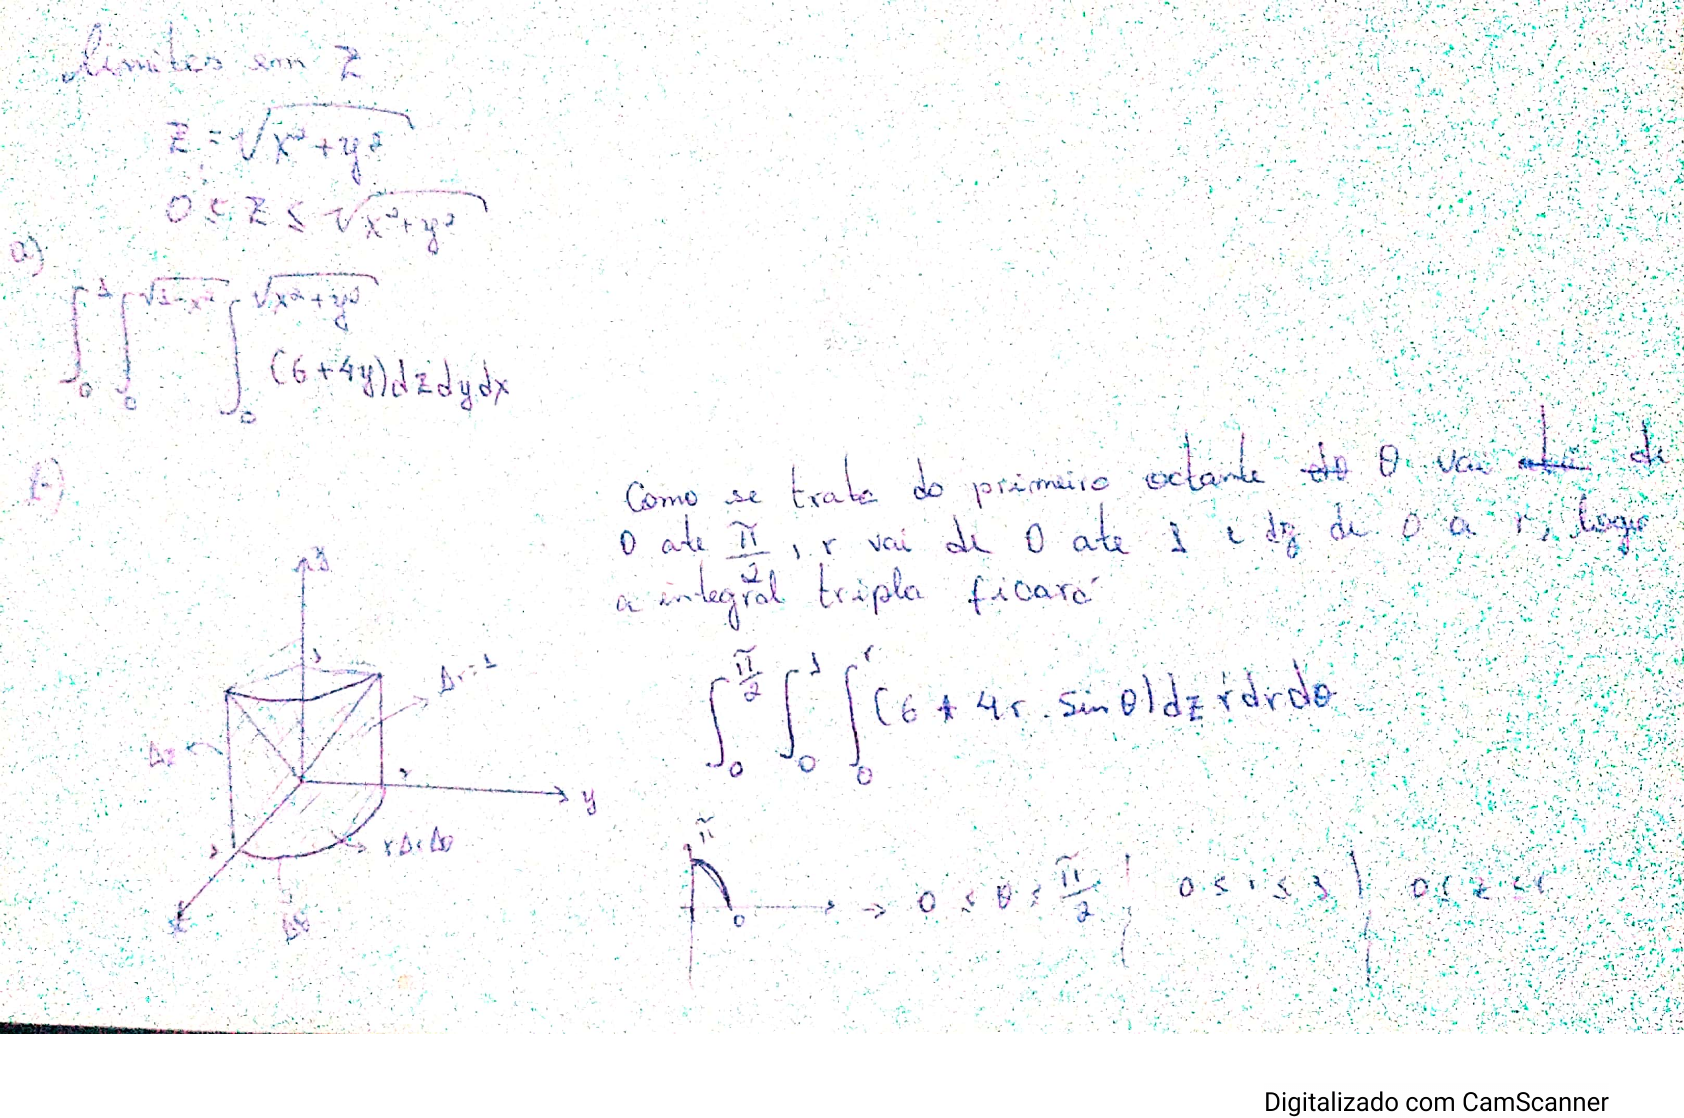 Limites em Z
Z = √x²+y²
0 ≤ Z ≤ √x²+y²
a)
∫₀¹ ∫₀^√1-x² ∫₀^√x²+y² (6+4y)dzdydx
b)
Como se trata do primeiro octante do θ vai até de
0 ate π/2, r vai de 0 ate 1 e dz de 0 a r, logo
a integral tripla ficará
∫₀^π/2 ∫₀¹ ∫₀^r (6 + 4r . sin θ)dz r dr dθ
z
Δr=1
Δz
y
rΔrΔθ
x
Δθ
π
0
→ 0 ≤ θ ≤ π/2 | 0 ≤ r ≤ 1 | 0 ≤ z ≤ r
Digitalizado com CamScanner